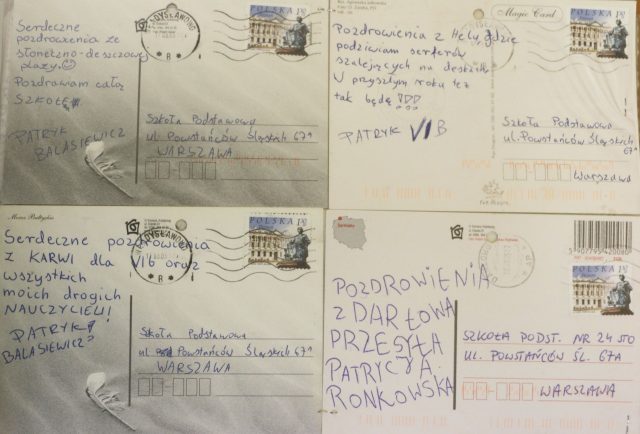 Serdeczne
pozdrowienia ze
słoneczno-deszczowej
plaży
Pozdrawiam całą
SZKOŁĘ
PATRYK
BALASIEWICZ
WŁADYSŁAWOWO
POLSKA
Szkoła Podstawowa
ul. Powstańców Śląskich 67a
WARSZAWA
Magic Card
Pozdrowienia z Helu gdzie
podziwiam serferów
szalejących na deskach
W przyszłym roku też
tak będę !!!
PATRYK VI B
POLSKA
Szkoła Podstawowa
ul. Powstańców Śląskich
67a
Warszawa
Morze Bałtyckie
Serdeczne pozdrowienia
z KARWI dla VI b oraz
wszystkich
moich drogich
NAUCZYCIELI!
PATRYK
BALASIEWICZ
WŁADYSŁAWOWO
POLSKA
Szkoła Podstawowa
ul. Powstańców Śląskich 67a
WARSZAWA
POZDROWIENIA
Z DARŁOWA
PRZESYŁA
PATRYCJA
RONKOWSKA
POLSKA
SZKOŁA PODST. NR 24 STO
UL. POWSTAŃCÓW ŚL. 67A
WARSZAWA